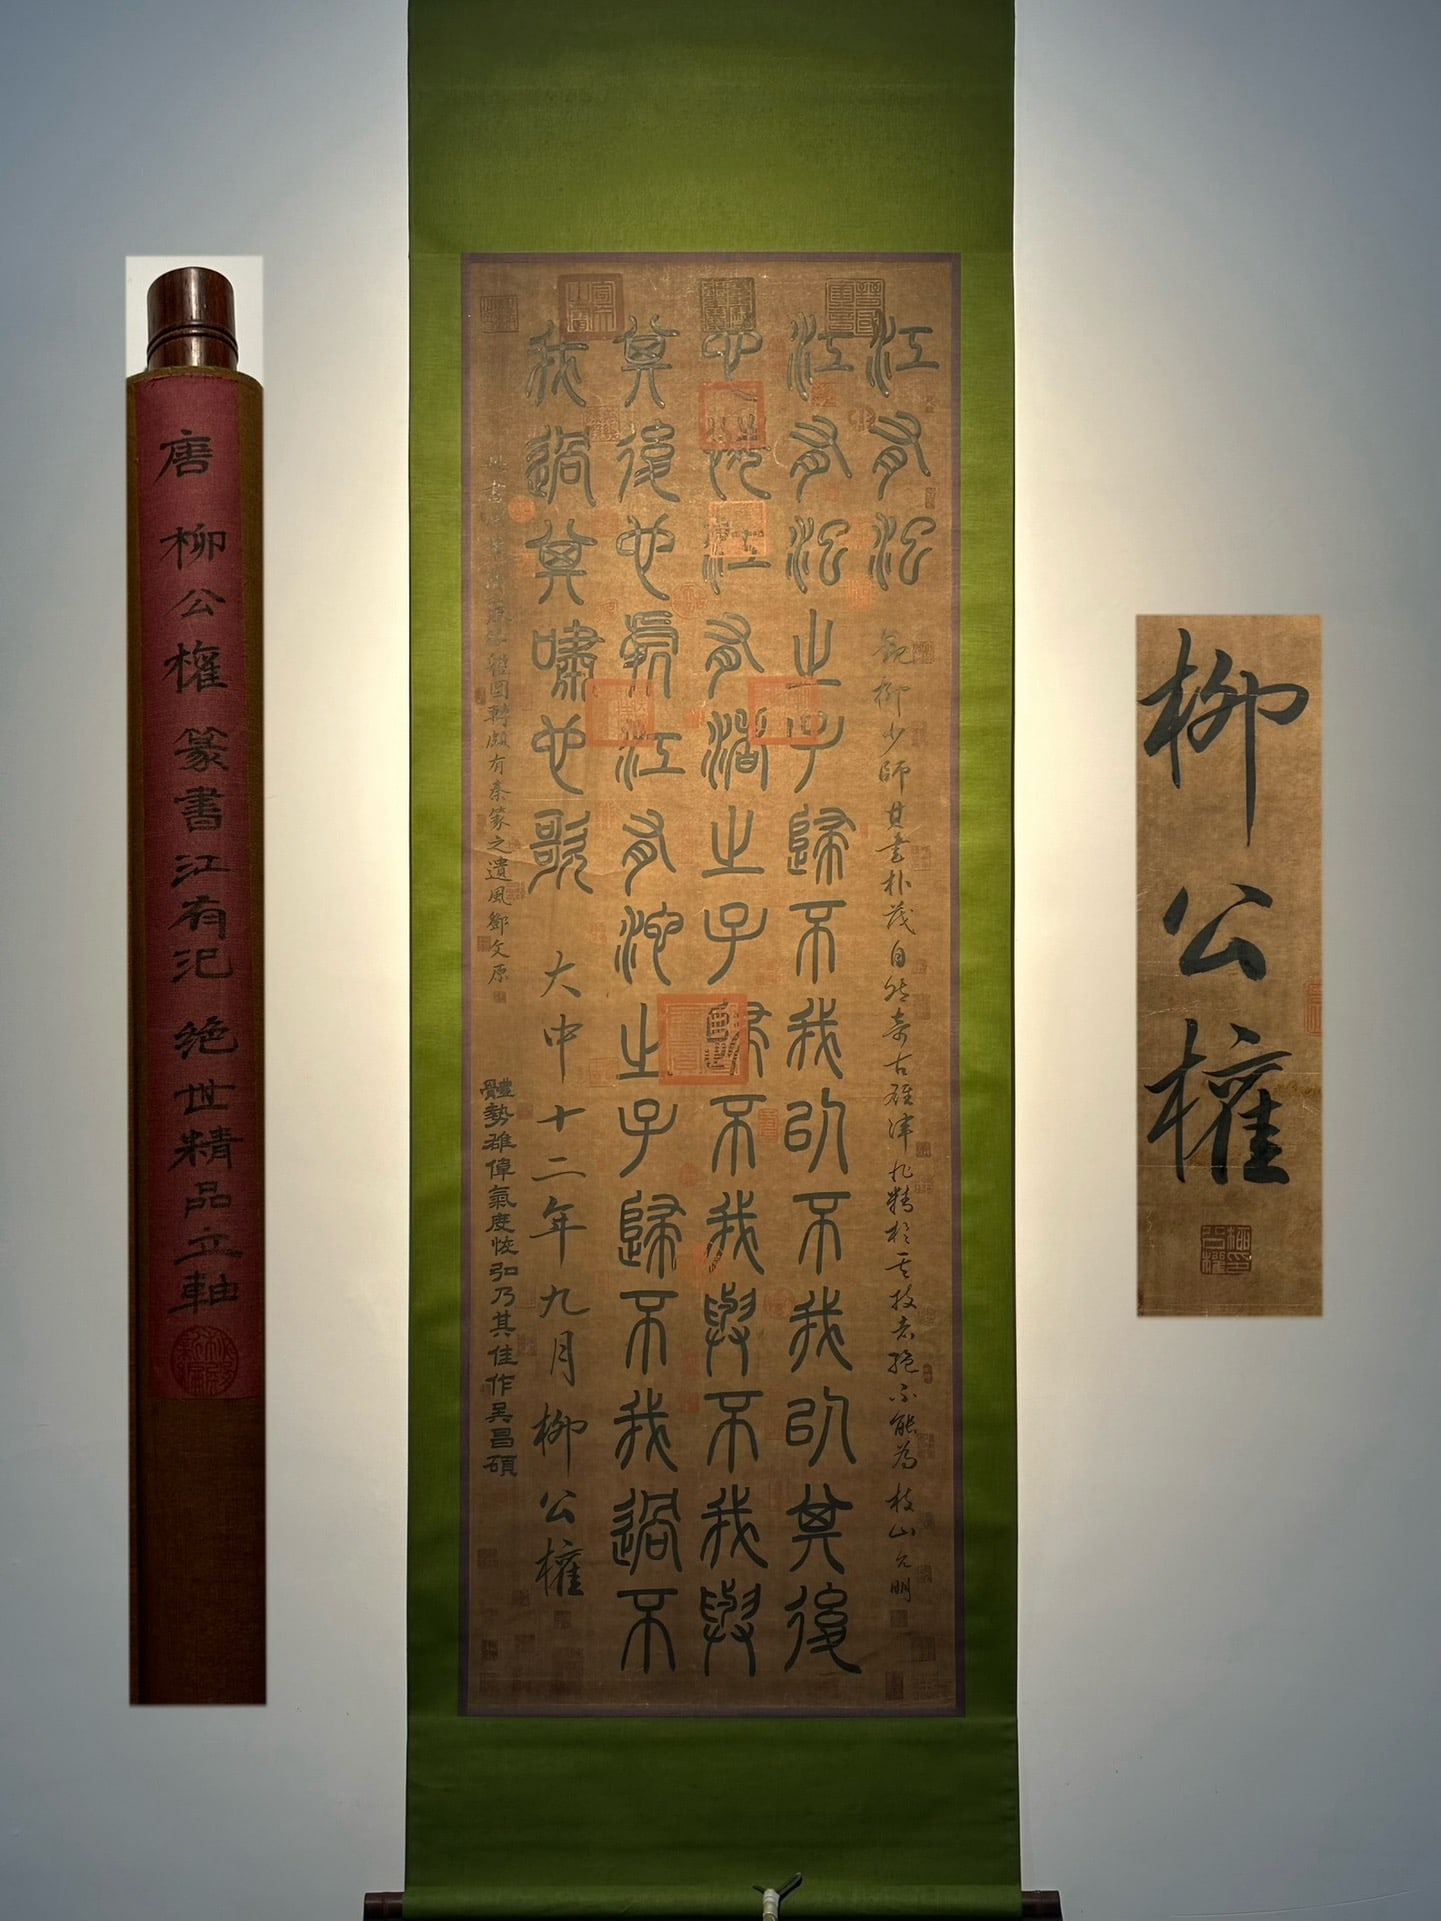 唐 柳公權 篆書江有汜 絕世精品立軸
江有汜
觀柳少師其書朴茂自然奇古雄渾非精於其技者絕不能為枝山允明
江有汜之子歸不我以不我以其後
也悔江有渚之子歸不我與不我與
其後也處江有沱之子歸不我過不
我過其嘯也歌
大中十二年九月柳公權
圓轉頗有秦篆之遺風鄧文原
體勢雄偉氣度恢弘乃其佳作吳昌碩
柳公權